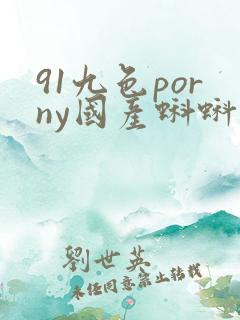 91九色por
ny国产蝌蝌
劉世英
未经同意禁止转载